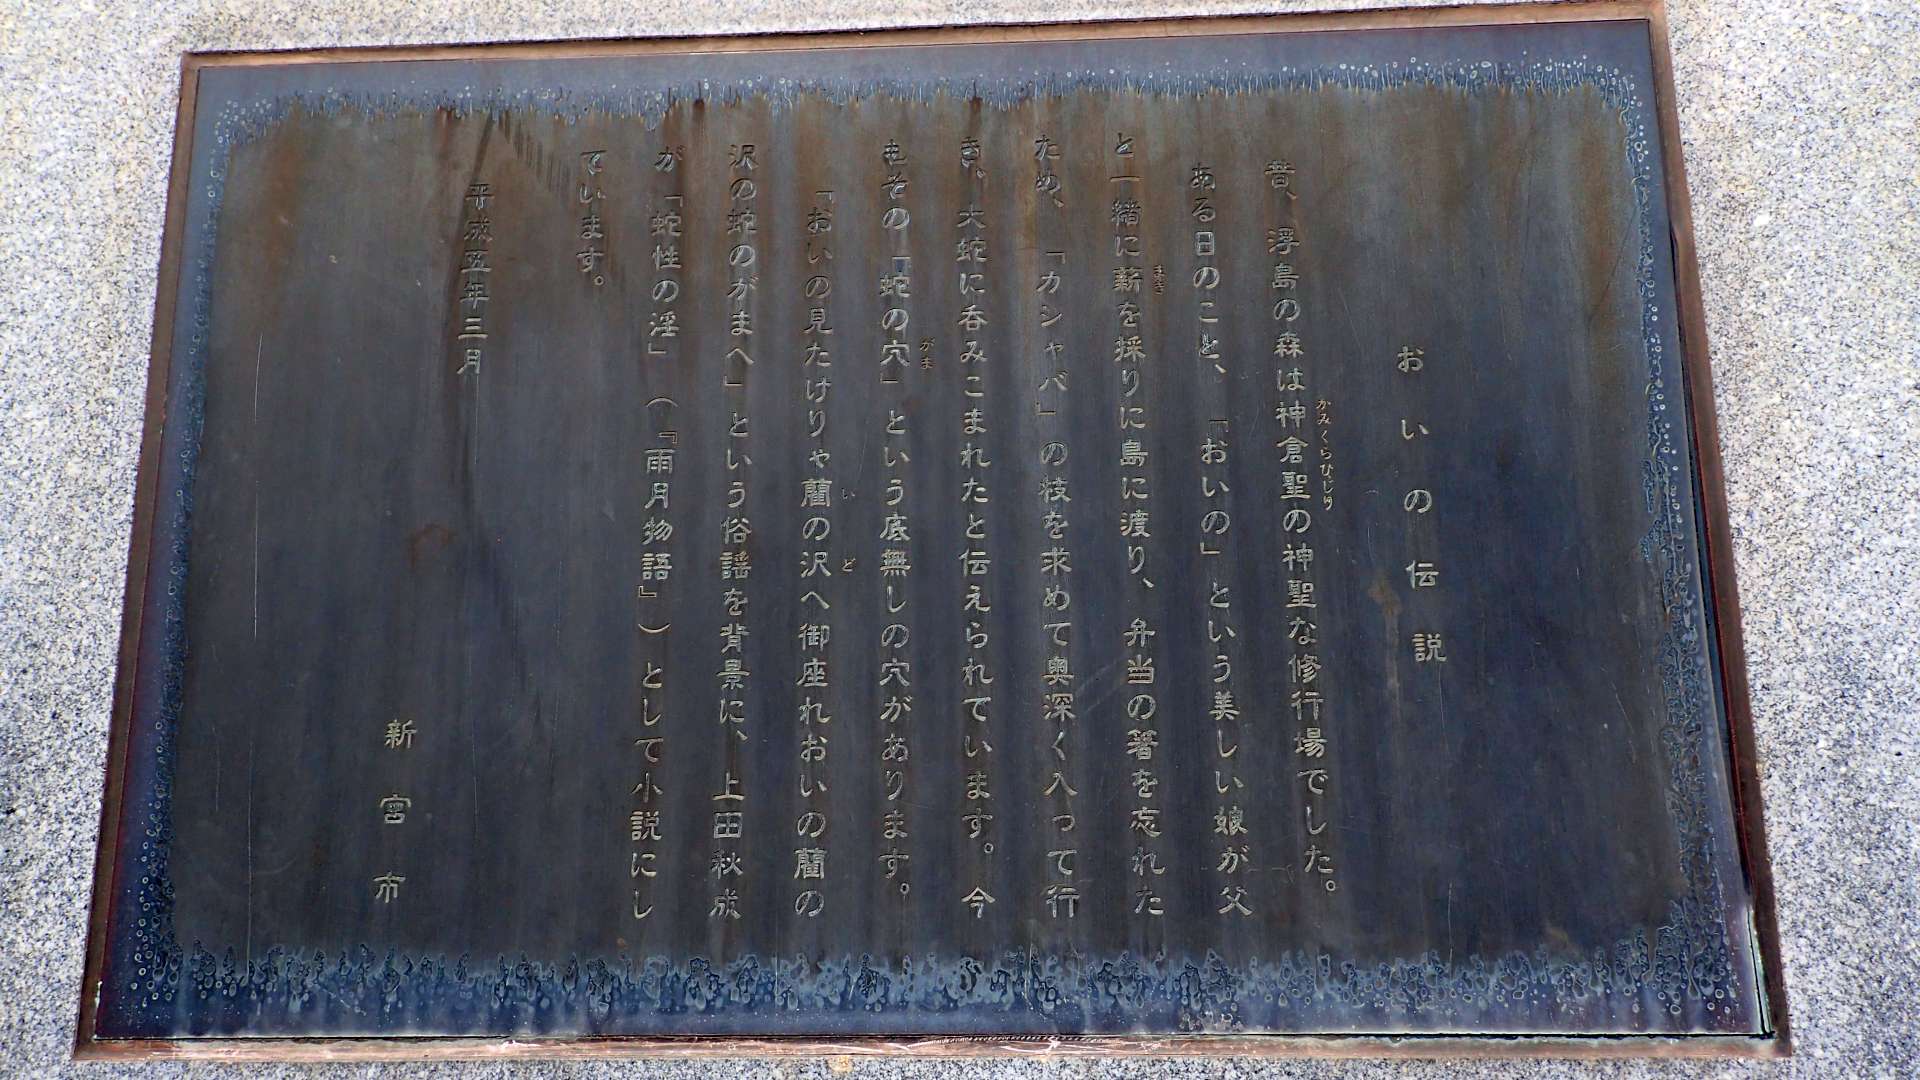 おいの伝説
昔、浮島の森は神倉聖の神聖な修行場でした。
かみくらひじり
ある日のこと、「おいの」という美しい娘が父
と一緒に薪を採りに島に渡り、弁当の箸を忘れた
まき
ため、「カシャバ」の枝を求めて奥深く入って行
き、大蛇に呑みこまれたと伝えられています。今
もその「蛇の穴」という底無しの穴があります。
がま
「おいの見たけりゃ藺の沢へ御座れおいの藺の
いど
沢の蛇のがまへ」という俗謡を背景に、上田秋成
が「蛇性の淫」（『雨月物語』）として小説にし
ています。
平成五年三月
新宮市